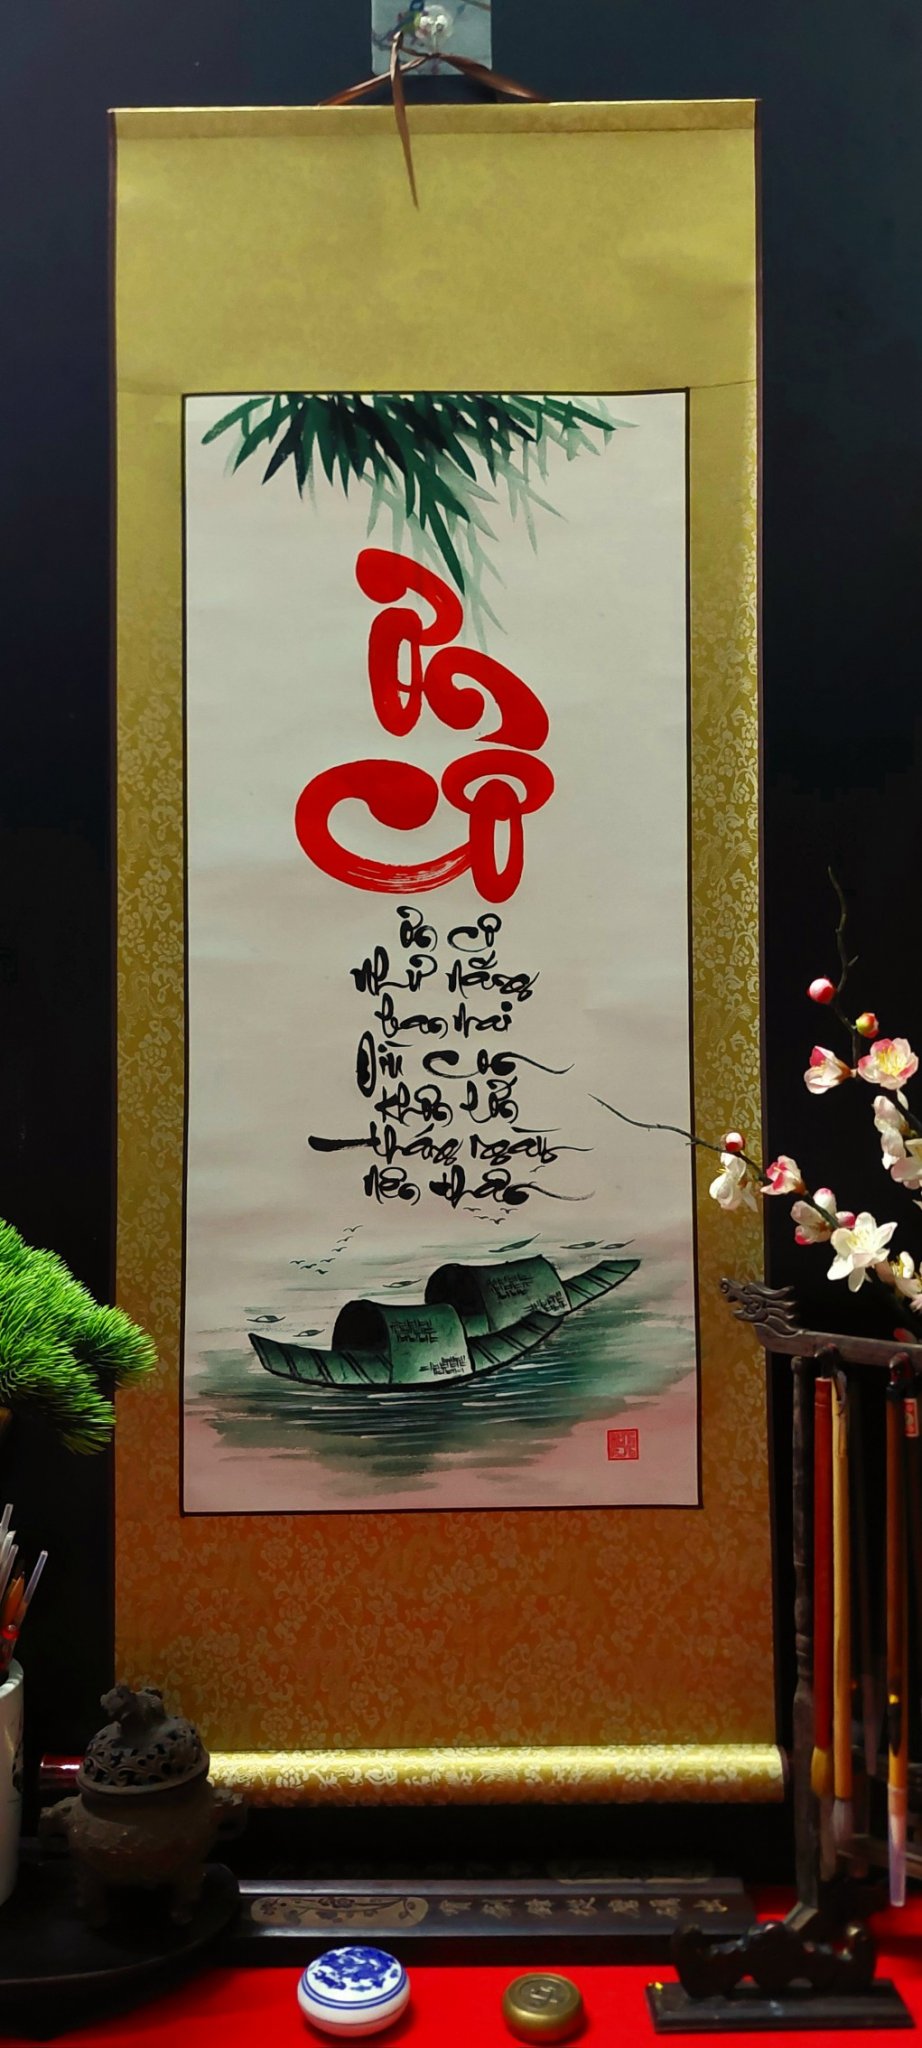 Ơn
Cô
Ơn Cô
Như nắng
ban mai
Dìu con
khôn lớn
tháng ngày
nên thân